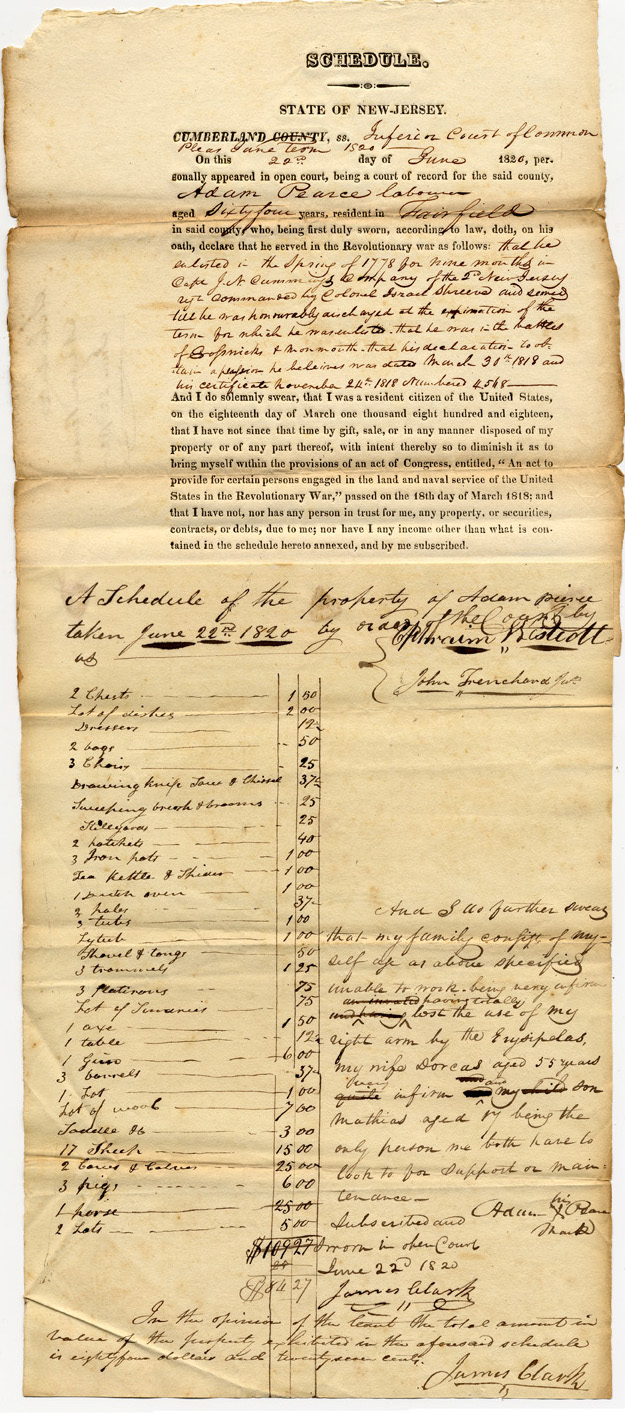 SCHEDULE.
STATE OF NEW-JERSEY.
CUMBERLAND COUNTY, ss. Inferior Court of Common
Pleas June term 1820
On this 22nd day of June 1820, per-
sonally appeared in open court, being a court of record for the said county,
Adam Pearce labourer
aged Sixtyfour years, resident in Fairfield
in said county who, being first duly sworn, according to law, doth, on his
oath, declare that he served in the Revolutionary war as follows: that he
enlisted in the Spring of 1778 for nine months in
Capt J. N. Cummings Company of the 2d New Jersey
regt Commanded by Colonel Israel Shreeve and served
till he was honourably discharged at the expiration of the
term for which he was enlisted. that he was in the battles
of Crosswicks & Monmouth that his declaration to ob-
tain a pension he believes was dated March 30th 1818 and
his certificate November 24th 1818 Numbered 4568
And I do solemnly swear, that I was a resident citizen of the United States,
on the eighteenth day of March one thousand eight hundred and eighteen,
that I have not since that time by gift, sale, or in any manner disposed of my
property or of any part thereof, with intent thereby so to diminish it as to
bring myself within the provisions of an act of Congress, entitled, "An act to
provide for certain persons engaged in the land and naval service of the United
States in the Revolutionary War," passed on the 18th day of March 1818; and
that I have not, nor has any person in trust for me, any property, or securities,
contracts, or debts, due to me; nor have I any income other than what is con-
tained in the schedule hereto annexed, and by me subscribed.
A Schedule of the property of Adam Pierce
taken June 22nd 1820 by order of the Court by
Ephraim
John Trenchard Jun
2 Chests 1 50
Lot of dishes 2 00
Dressers 12
2 bags 50
3 Chairs 25
Drawing knife Saw & Chissel 37
Sweeping brush & brooms 25
Stileyards 25
2 hatchets 40
3 Iron pots 1 00
Tea Kettle & Spider 1 00
1 Dutch oven 1 00
2 pales 37
3 tubs 1 00
Lytub 1 00
Shovel & tongs 50
3 trammels 1 25
3 flatirons 75
Lot of 75
1 axe 1 50
1 table 12
1 Gun 6 00
3 barrels 37
1 Lot 1 00
Lot of wool 7 00
Saddle &c 3 00
17 Sheep 15 00
2 Cows & Calves 25 00
3 pigs 6 00
1 horse 25 00
2 Lots 5 00
$109 27
$84 27
And I do further swear
that my family consists of my-
self age as above specified
unable to work being very infirm
an invalid having totally
and having lost the use of my
right arm by the Erysipelas,
my wife Dorcas aged 55 years
very
quite infirm and my child son
Mathias aged by being the
only person we both have to
look to for support or main-
tenance
Adam his X mark Pearce
Subscribed and
Sworn in open Court
June 22d 1820
James Clark
In the opinion of the Court the total amount in
value of the property exhibited in the aforesaid schedule
is eightyfour dollars and twentyseven cents.
James Clark